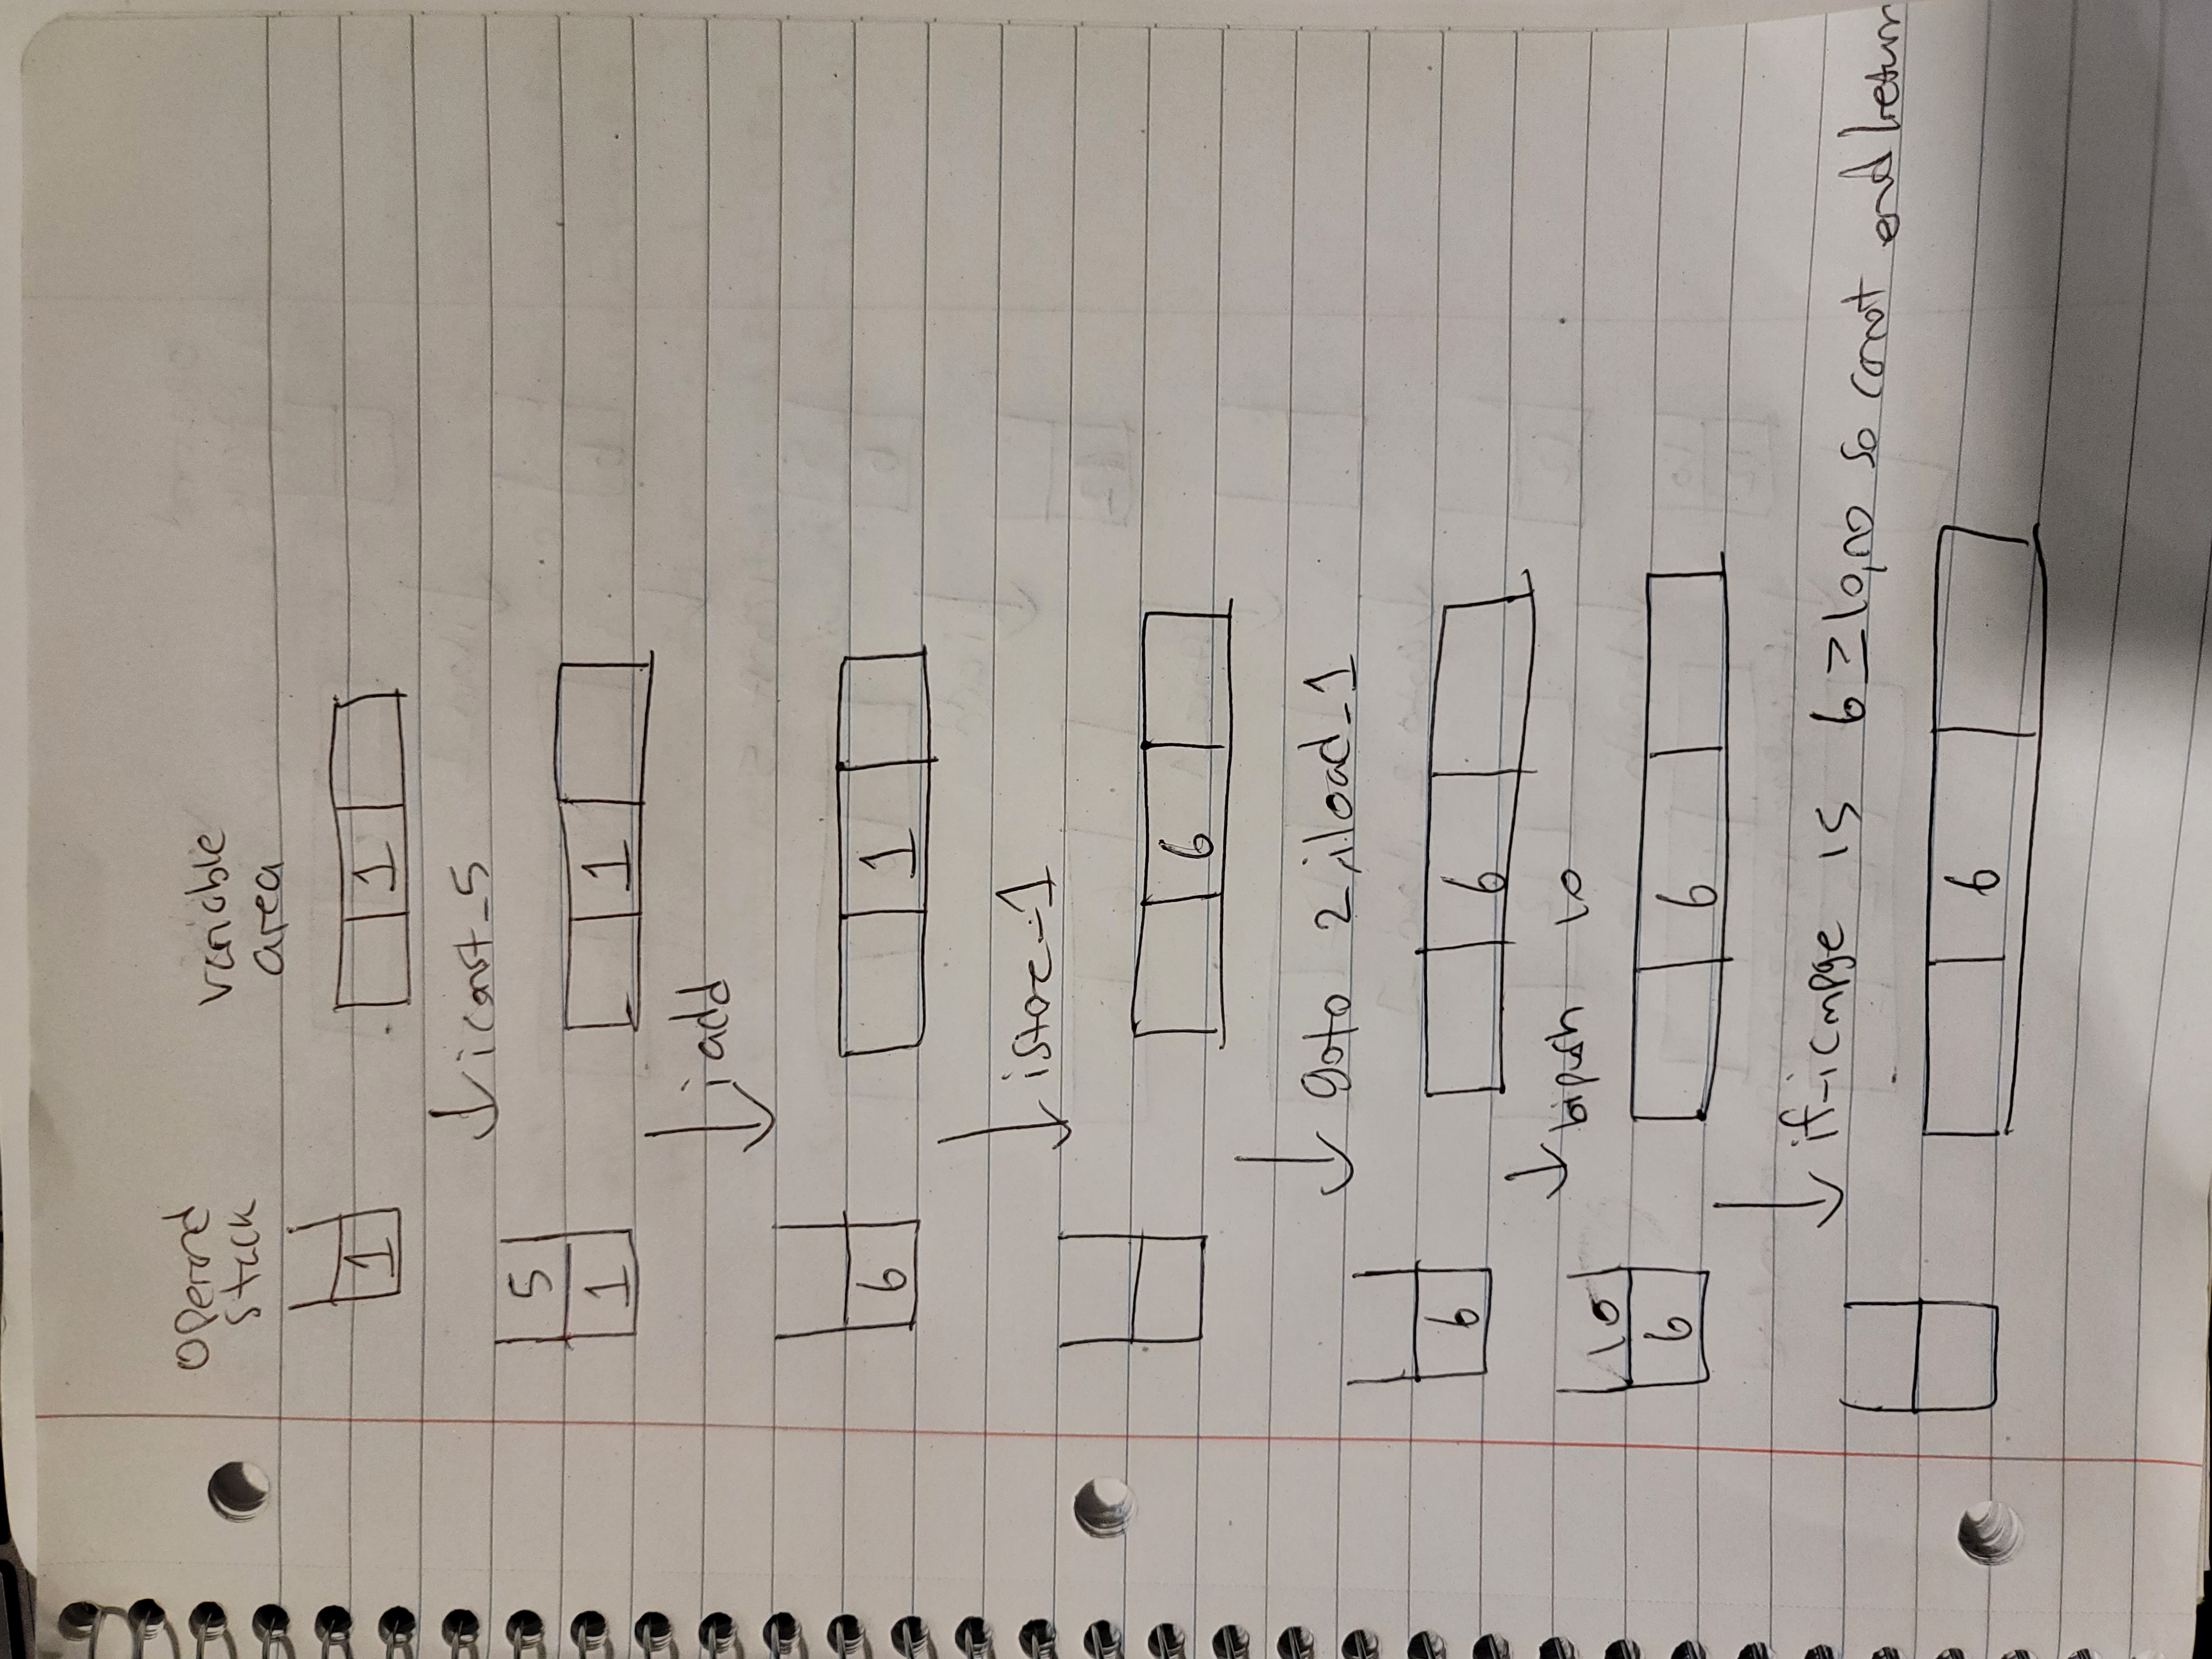 operand variable
stack area
1 1
iconst_5
5
1 1
iadd
6 1
istore_1
6
goto 2, iload_1
6 6
bipush 10
10
6 6
if-icmpge is 6≥10, no so cannot end/return
6